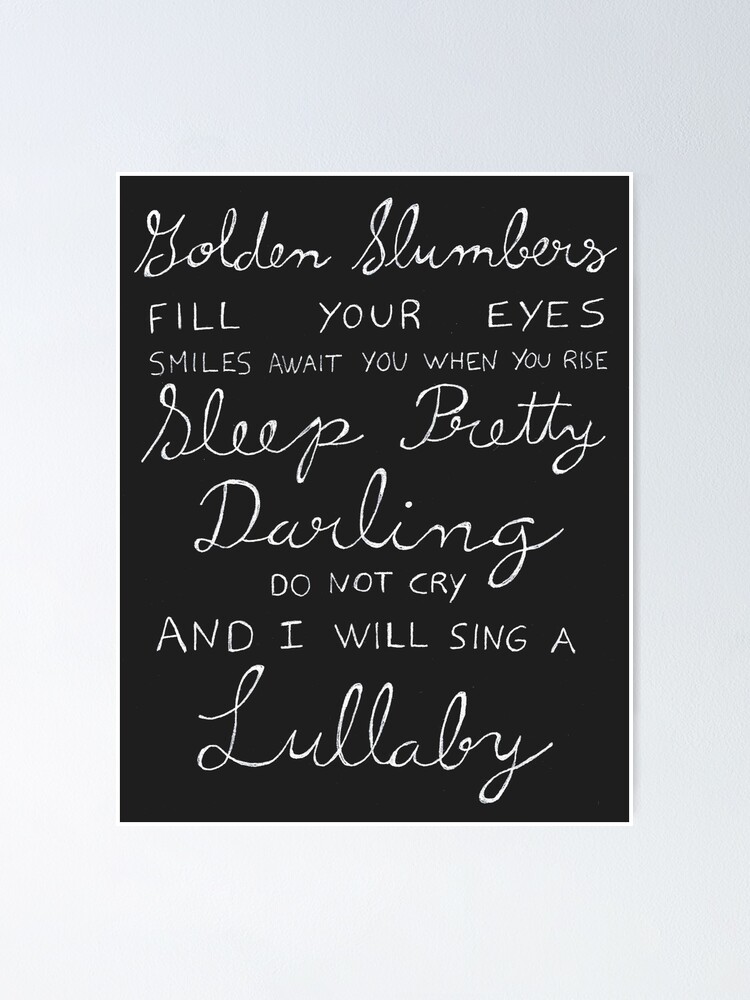 Golden Slumbers
FILL YOUR EYES
SMILES AWAIT YOU WHEN YOU RISE
Sleep Pretty
Darling
DO NOT CRY
AND I WILL SING A
Lullaby